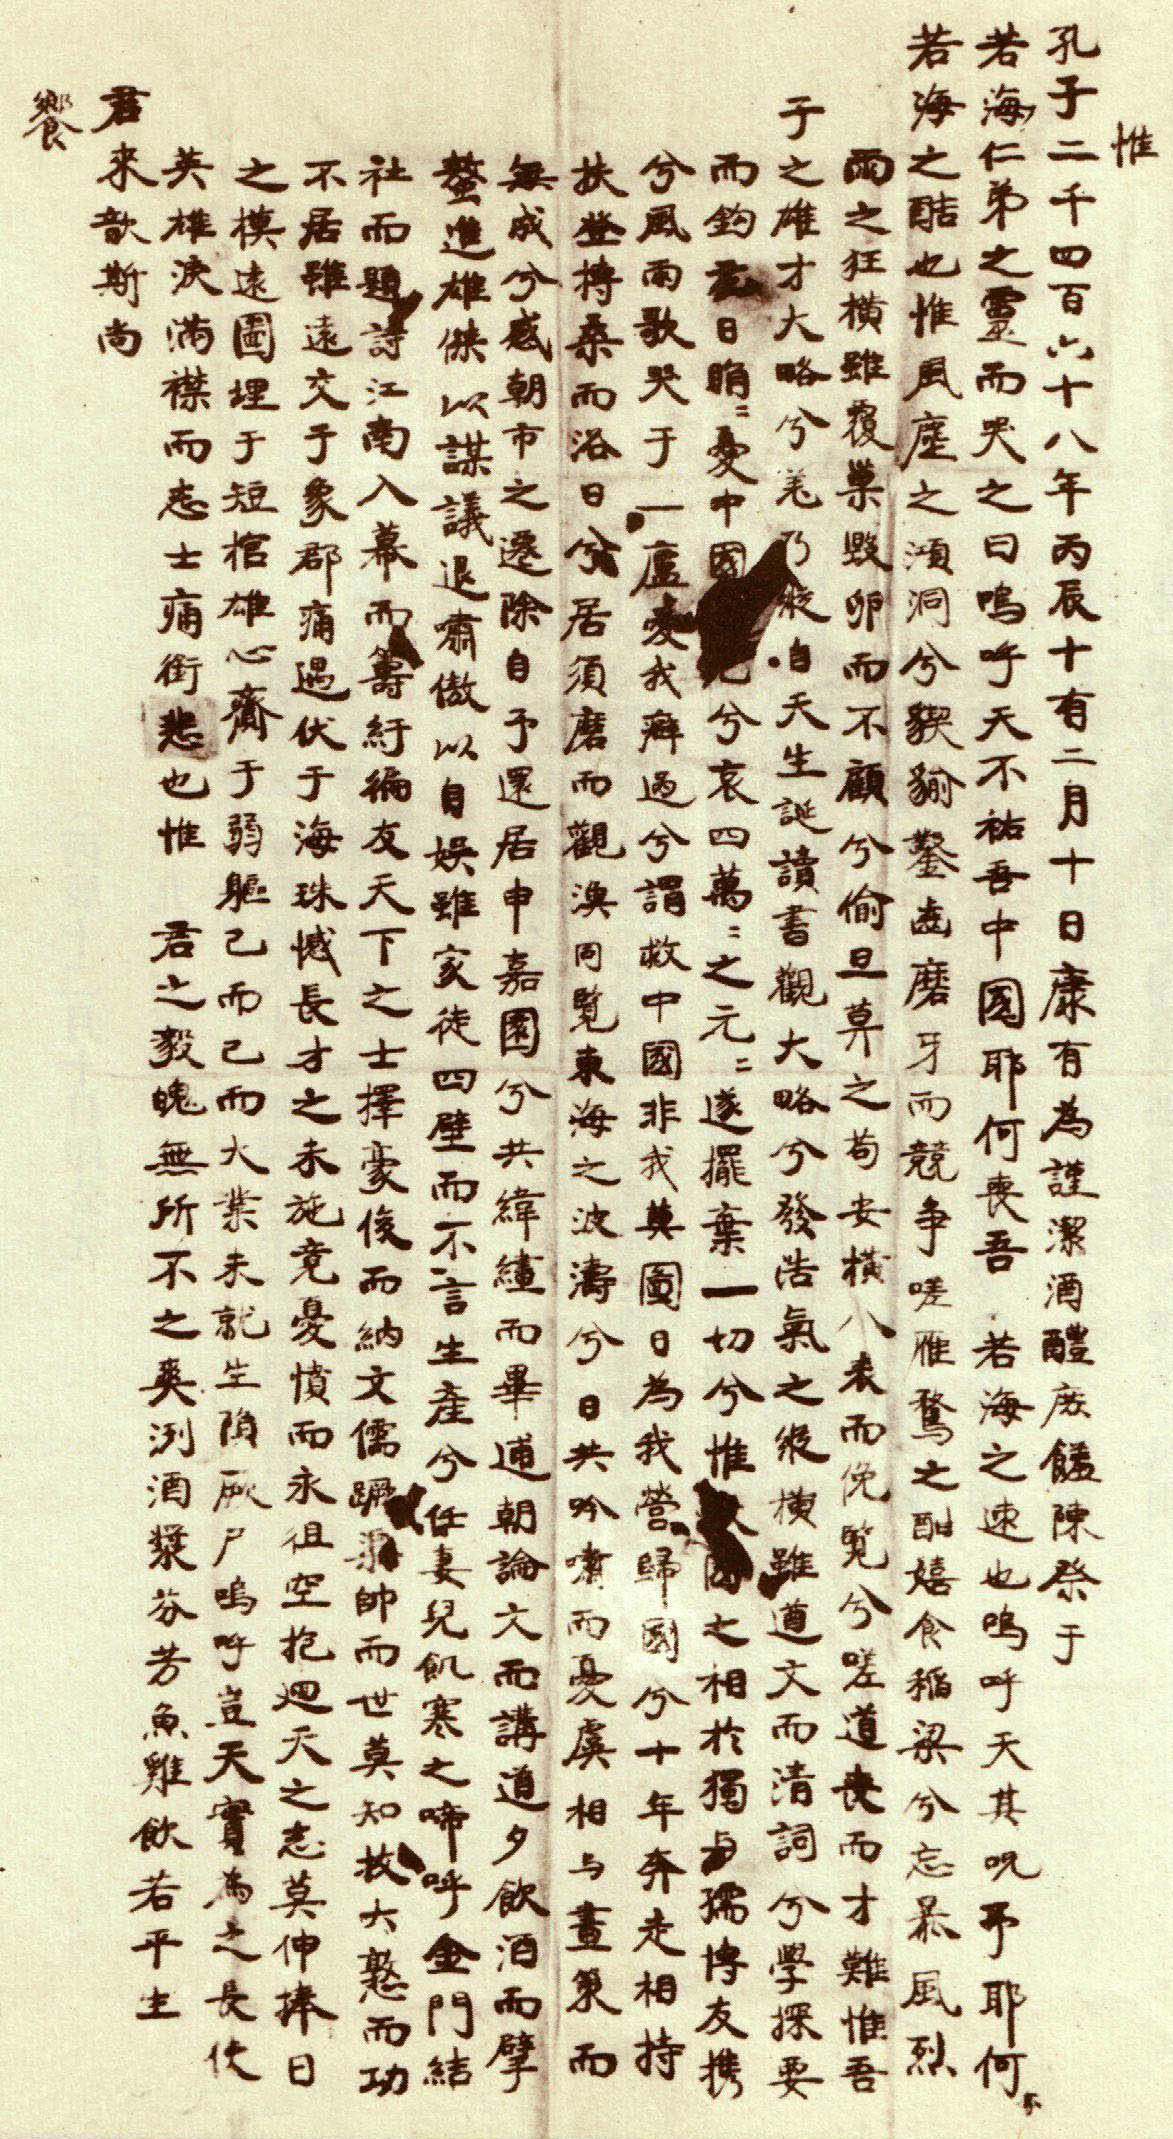 惟
孔子二千四百六十八年丙辰十有二月十日康有為謹潔酒醴庶饈陳祭于
若海仁弟之靈而哭之曰嗚呼天不祐吾中國耶何喪吾 若海之速也嗚呼天其呪予耶何
若海之酷也惟風塵之澒洞兮猰貐鑿齒磨牙而競爭嗟雁鶩之酣嬉食稻粱兮忘暴風烈
雨之狂橫雖覆巢毀卵而不顧兮偷旦莫之苟安橫八表而俛覧兮嗟道喪而才難惟吾
于之雄才大略兮羌乃縱自天生誕讀書觀大略兮發浩氣之縱橫雖遒文而清詞兮學探要
而鈎玄日睊睊憂中國兮哀四萬萬之元元遂擺棄一切兮惟國之相於獨与孺博友携
兮風雨歌哭于一廬愛我癖過兮謂救中國非我莫圖日為我營歸國兮十年奔走相持
扶登摶桑而浴日兮居須磨而觀渙同覧東海之波濤兮日共吟嘯而憂虞相与畫策而
無成兮感朝市之遷除自予還居申嘉園兮共緯繣而畢逋朝論文而講道夕飲酒而擘
螯進雄傑以謀議退嘯傲以自娛雖家徒四壁而不言生產兮任妻兒飢寒之啼呼金門結
社而題詩江南入幕而籌紆徧友天下之士擇豪俊而納文儒躐帥而世莫知拔大憝而功
不居雖遠交于象郡痛遇伏于海珠憾長才之未施竟憂憤而永徂空抱迴天之志莫伸捧日
之模遠圖埋于短棺雄心齎于弱軀已而已而大業未就生隕厥尸嗚呼豈天實為之長使
英雄淚滿襟而志士痛銜悲也惟 君之毅魄無所不之奠洌酒漿芬芳魚雞飲若平生
君來歆斯尚
饗